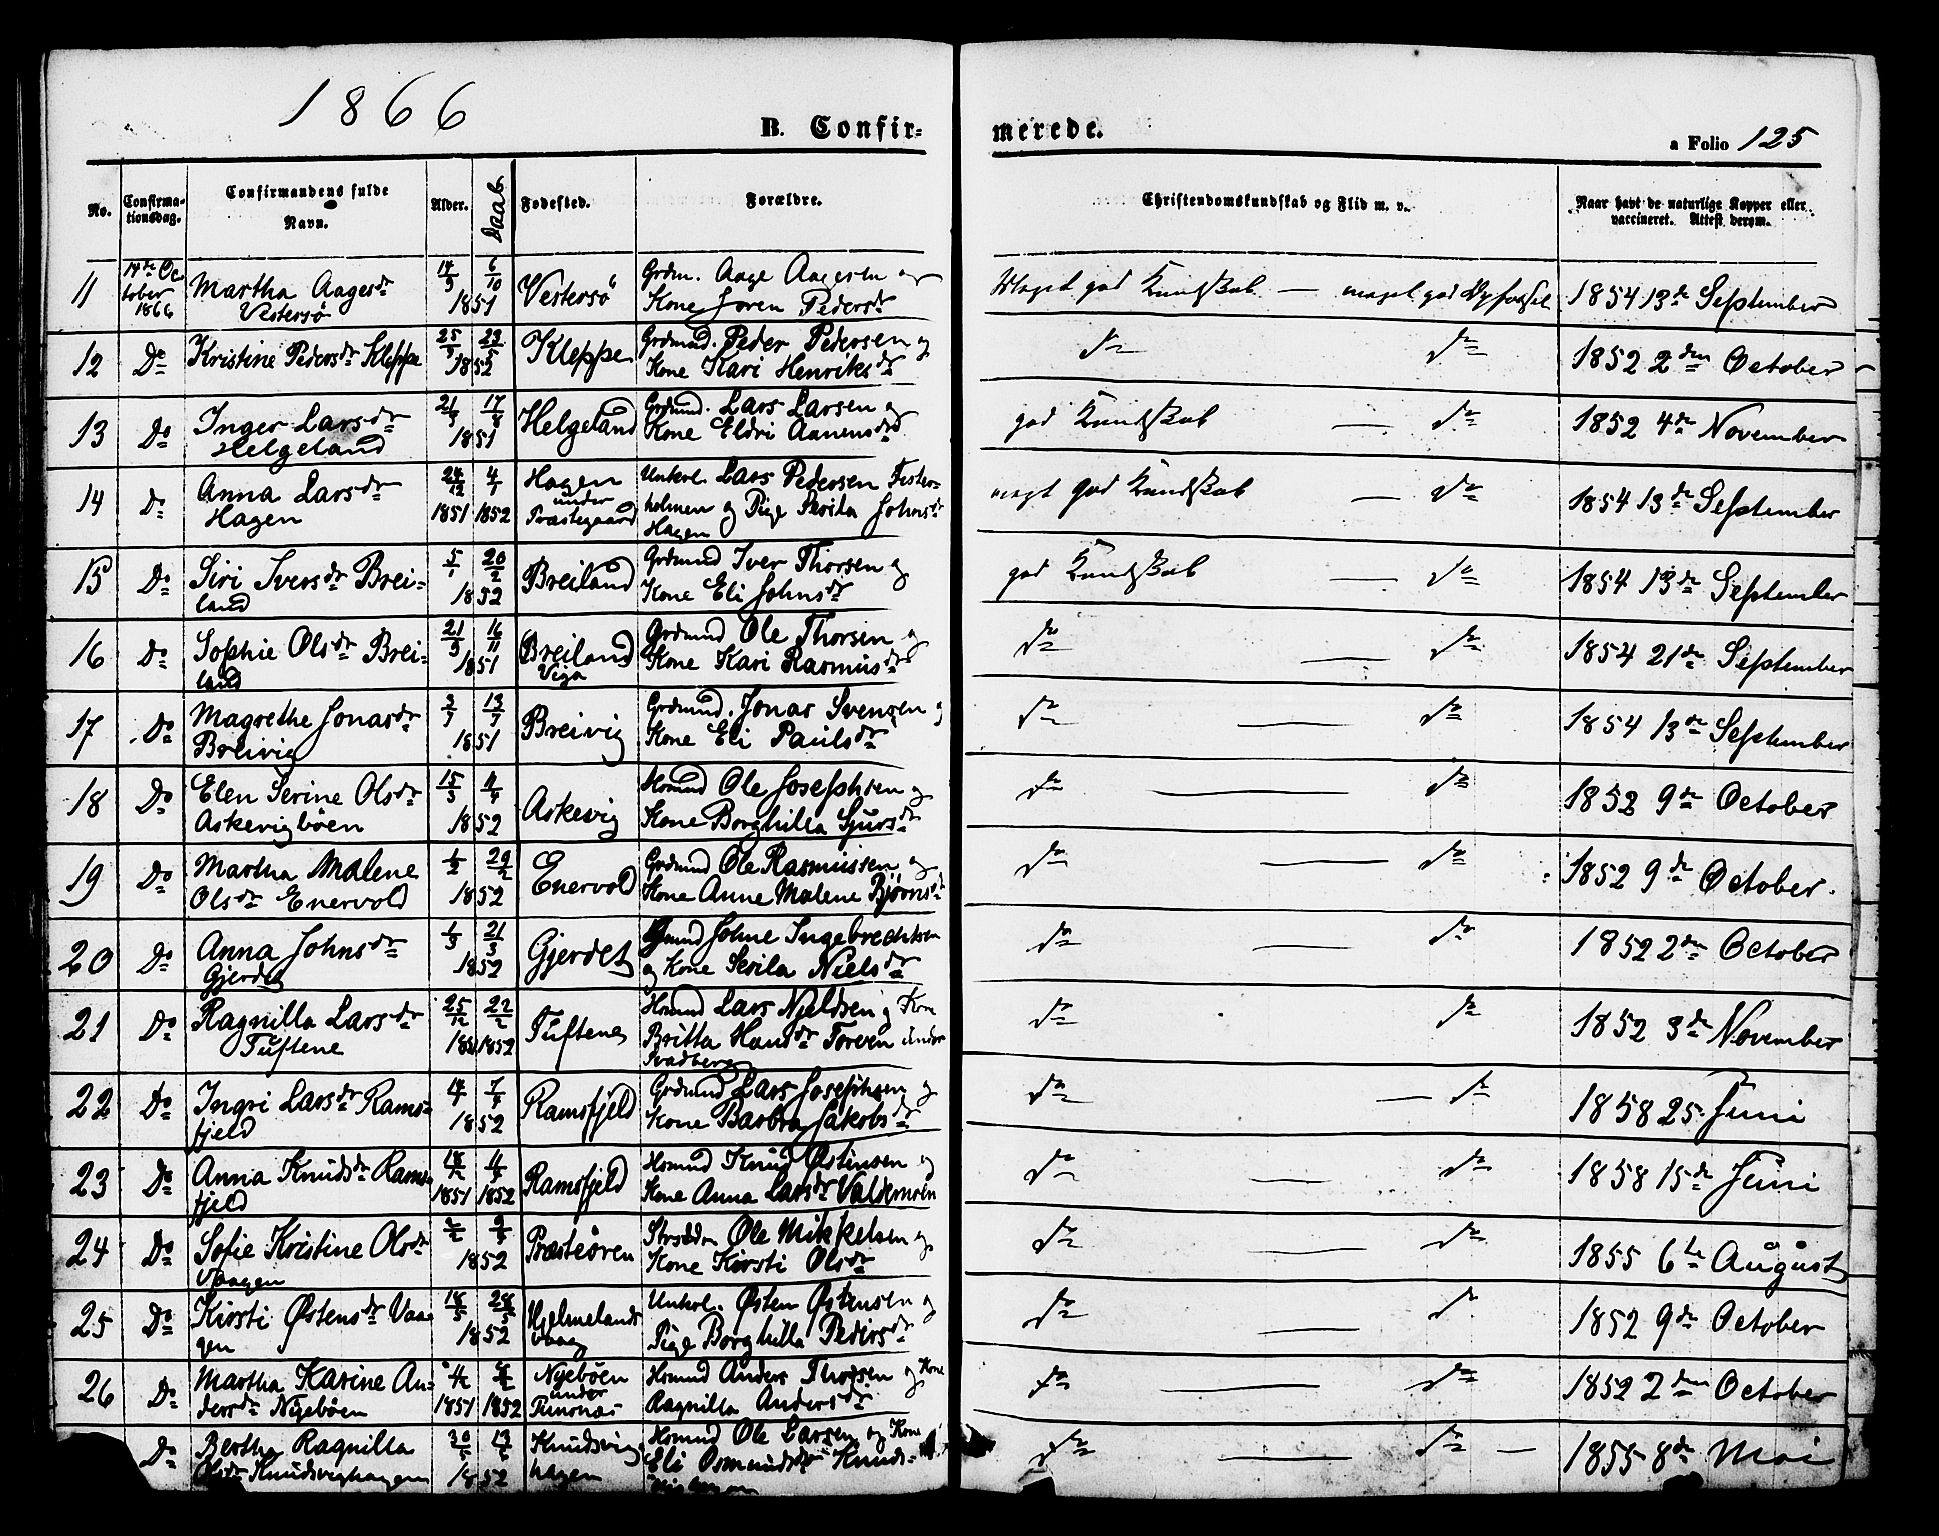 1866
B. Confirmerede.
a Folio 125
No. Confirmationsdag. Confirmandens fulde Navn. Alder. Daab. Fødested. Forældre. Christendomskundskab og Flid m. v. Naar havt de naturlige Kopper eller vaccineret. Attest derom.
11 14de October 1866 Martha Aagesdr Vestersø 6/10 1851 Vestersø Grdm. Aage Aagesen og Kone Joren Pedersdr Meget god Kundskab — meget god Opførsel 1854 13de September
12 Do Kristine Pedersdr Kleppe 1852 Kleppe Grdmnd. Peder Pedersen og Kone Kari Henriksdr do do 1852 2den October
13 Do Inger Larsdr Helgeland 1851 Helgeland Grdmnd. Lars Larsen og Kone Eldri Aanensd god Kundskab — do 1852 4de November
14 Do Anna Larsdr Hagen 24/12 1851 4/1 1852 Hagen under Præstegaard Unkrl. Lars Pedersen Fisterholmen og Pige Serila Johnsdr Hagen megt god Kundskab — do 1854 13de September
15 Do Siri Iversdr Breiland 5/1 20/2 1852 Breiland Grdmnd Iver Thorsen og Kone Eli Johnsdr god Kundskab — do 1854 13de September
16 Do Sophie Olsdr Breiland 16/11 1851 Breiland Viga Grdmnd Ole Thorsen og Kone Kari Rasmusdr do — do 1854 21de September
17 Do Magrethe Jonasdr Breivig 13/7 1851 Breivig Grdmnd. Jonas Svensen og Kone Eli Paulsdr do — do 1854 13de September
18 Do Elen Serine Olsdr Askevigbøen 15/3 1852 Askevig Hsmnd Ole Josephsen og Kone Borghilla Sjursdr do — do 1852 9de October
19 Do Martha Malene Olsdr Enervold 1/2 29/2 1852 Enervold Grdmnd Ole Rasmussen og Kone Anne Malene Bjørnsdr do — do 1852 9de October.
20 Do Anna Johnsdr Gjerdet 1/3 21/3 1852 Gjerdet Johne Ingebrechtsen og Kone Serila Nielsdr do — do 1852 2den October
21 Do Ragnilla Larsdr Tuftene 25/12 1851 22/2 1852 Tuftene Hsmnd Lars Njeldsen og Kone Britta Hansdr under do do 1852 3de November
22 Do Ingri Larsdr Ramsfjeld 1852 Ramsfjeld Grdmnd Lars Josephsen og Kone Barbra Jakobsdr do — do 1858 25. Juni
23 Do Anna Knudsdr Ramsfjeld 1851 1852 Ramsfjeld Hsmnd Knud Østensen og Kone Anna Larsdr do — do 1858 15de Juni
24 Do Sofie Kristine Olsdr Vaagen 1852 Præsteøren Ole Mikkelsen og Kone Kirsti Olsdr do — do 1855 6te August
25 Do Kirsti Østensdr Vaagen 18/5 28/5 1852 Hjelmelandsvaag Unkrl. Østen Østensen og Pige Borghilla Pedersdr do — do 1852 9de October
26 Do Martha Karine Andersdr Nyebøen 1851 1852 Nyebøen under Hsmnd Anders Thorsen og Kone Ragnilla Andersdr do — do 1852 2den October
Do Bertha Ragnilla Olsdr Knudsvighagen 1852 Knudsvighagen Hsmnd Ole Larsen og Kone Eli Osmundsdr do — do — 1855 8de Mai